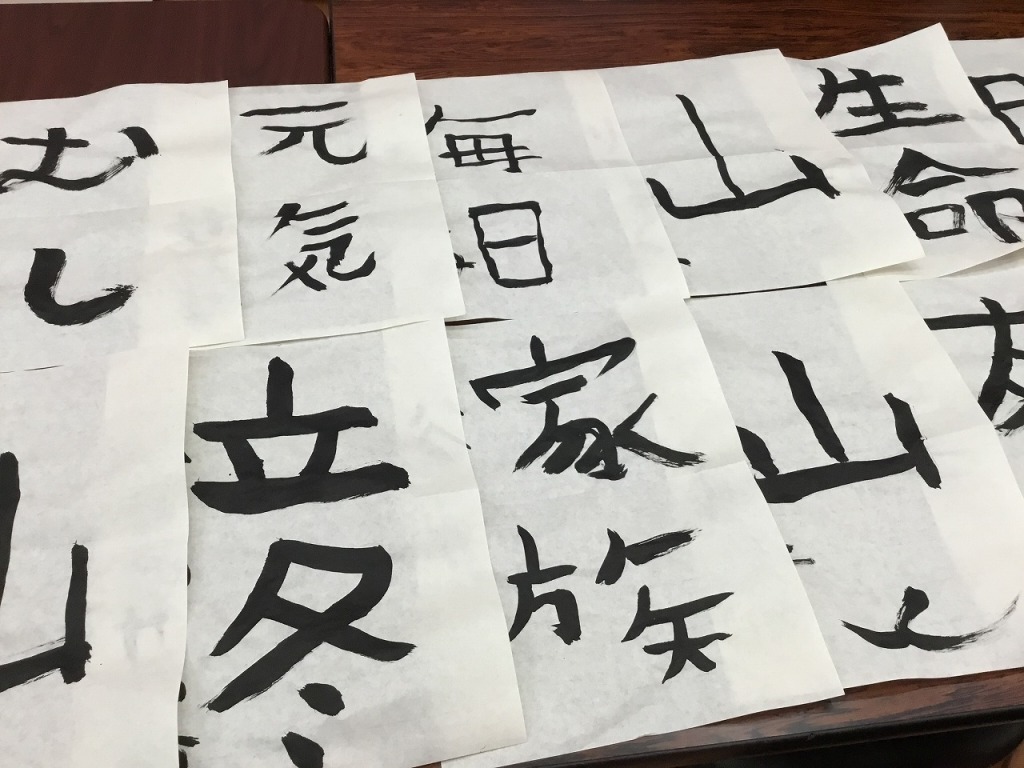 むし
元気
毎日
山
生命
山
立冬
家族
山